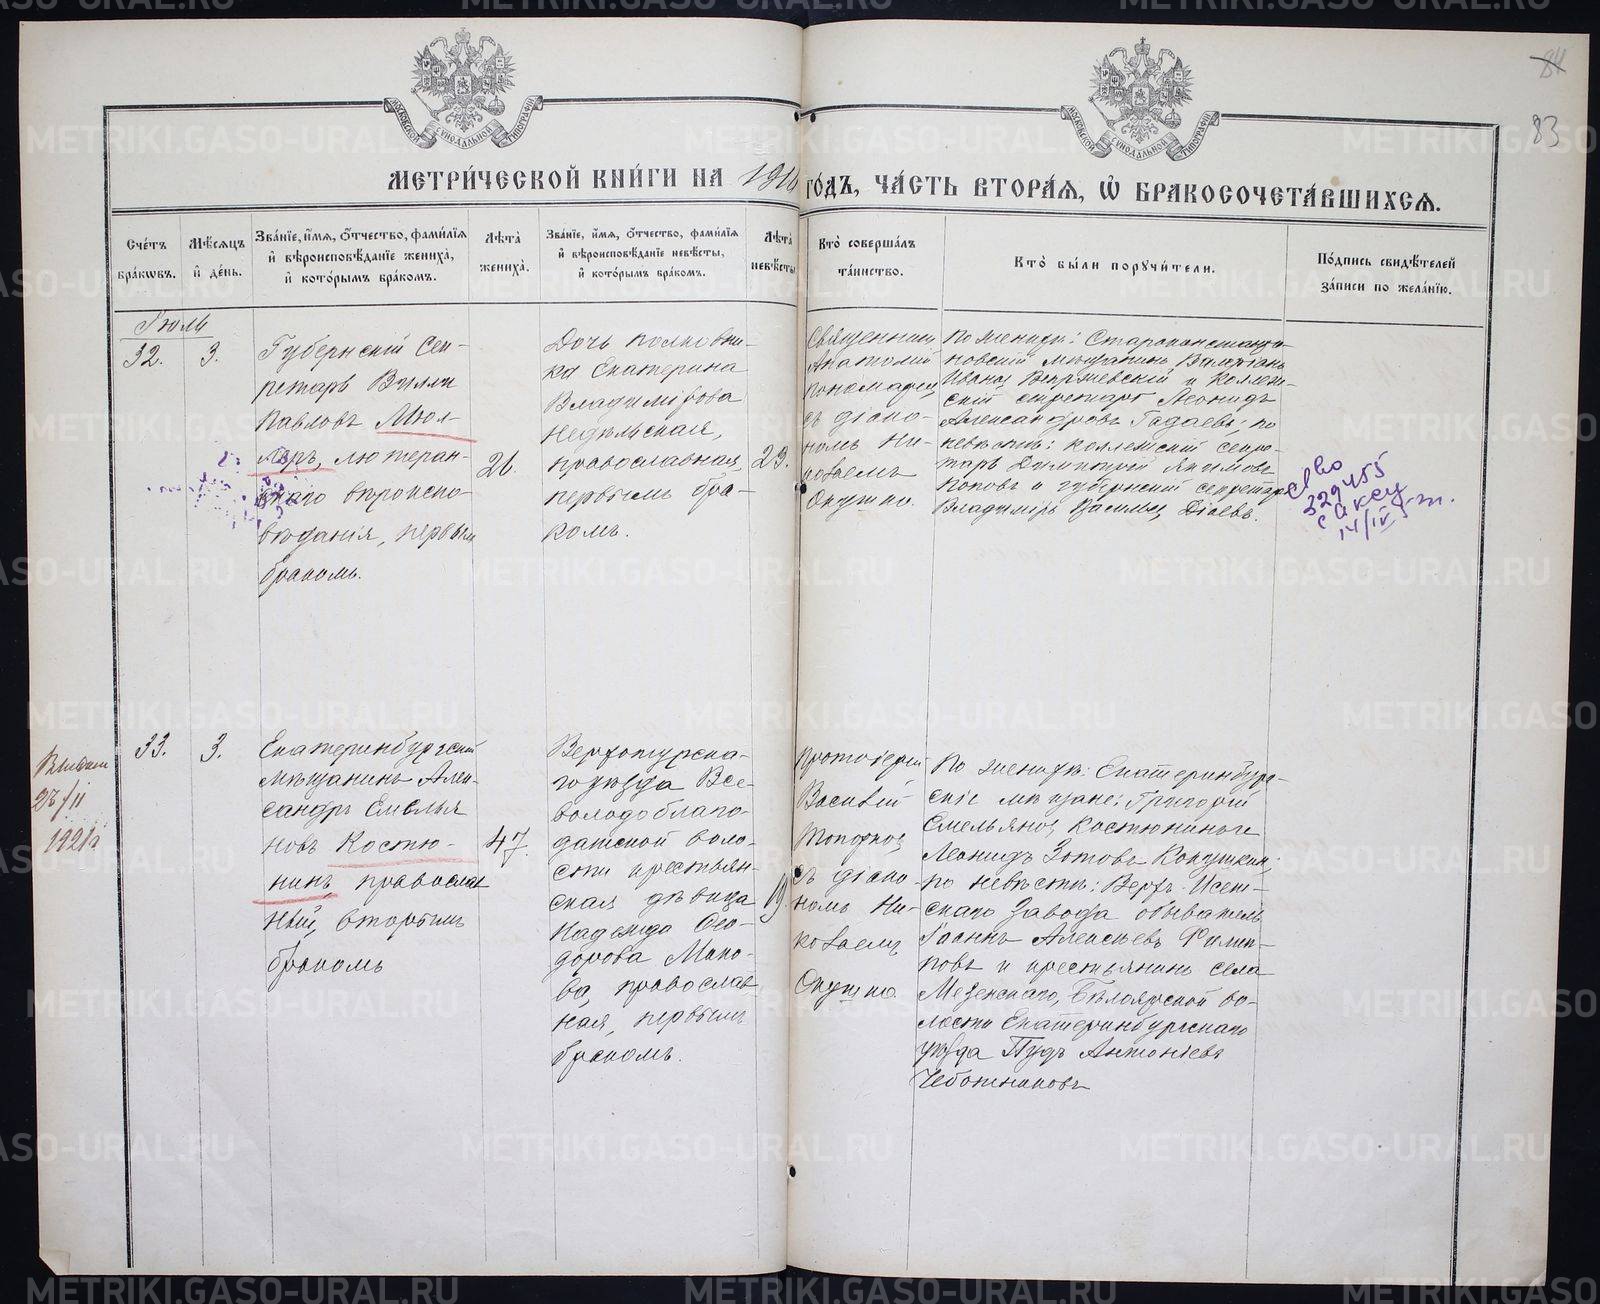 84
83
МОСКОВСКОЙ СѴНОДАЛЬНОЙ ТИПОГРАФІИ
МОСКОВСКОЙ СѴНОДАЛЬНОЙ ТИПОГРАФІИ
МЕТРИ́ЧЕСКОЙ КНИ́ГИ НА 191
ГО́ДЪ, ЧА́СТЬ ВТОРА́Я, Ѽ БРАКОСОЧЕТА́ВШИХСЯ.
Сче́тъ бра́ковъ.
Мѣ́сяцъ и҆ де́нь.
Зва́нїе, и҆́мя, ѻ҆́тчество, фами́лїя и҆ вѣроисповѣ́данїе жениха̀, и҆ кото́рымъ бра́комъ.
Лѣ́та жениха̀.
Зва́нїе, и҆́мя, ѻ҆́тчество, фами́лїя и҆ вѣроисповѣ́данїе невѣ́сты, и҆ кото́рымъ бра́комъ.
Лѣ́та невѣ́сты
Кто̀ соверша́лъ та́инство.
Кто̀ бы́ли порꙋчи́тели.
По́дпись свидѣ́телей за́писи по жела́нїю.
Іюль
32.
3.
Губернскій Сек-
ретарь Вилли
Павловъ Мюл-
леръ, лютеран-
скаго вѣроиспо-
вѣданія, первымъ
бракомъ.
26.
Дочь полковни-
ка Екатерина
Владимірова
Недѣльская,
православная,
первымъ бра-
комъ.
23.
Священникъ
Анатолій
Пономаревъ
съ діако-
номъ Ни-
колаемъ
Окушко.
По женихѣ: Староконстанти-
новскій мѣщанинъ Валеріанъ
Ивановъ Вержневскій и коллеж-
скій секретарь Леонидъ
Александровъ Гадаевъ; по
невѣстѣ: коллежскій секре-
тарь Димитрій Якимовъ
Поповъ и губернскій секретарь
Владиміръ Васильевъ Діевъ.
сво
329455
14/IV
33.
3.
Екатеринбургскій
мѣщанинъ Алек-
сандръ Емелья
новъ Костю-
нинъ, православ
ный, вторымъ
бракомъ
47.
Верхотурска-
го уѣзда Все-
володоблаго-
датской воло-
сти крестьян-
ская дѣвица
Надежда Ѳео-
дорова Мано-
ва, православ-
ная, первымъ
бракомъ.
19.
Протоіерей
Василій
Топорковъ
съ діако-
номъ Ни-
колаемъ
Окушко
По женихѣ: Екатеринбург-
скіе мѣщане: Григорій
Емельяновъ Костюнинъ и
Леонидъ Зотовъ Кокушкинъ;
по невѣстѣ: Верхъ-Исет-
скаго завода обыватель
Іоаннъ Алексѣевъ Филип-
повъ и крестьянинъ села
Мезенскаго, Бѣлоярской во-
лости Екатеринбургскаго
уѣзда Пудъ Антоніевъ
Чебоксаровъ
27/II
1921г
METRIKI.GASO-URAL.RU